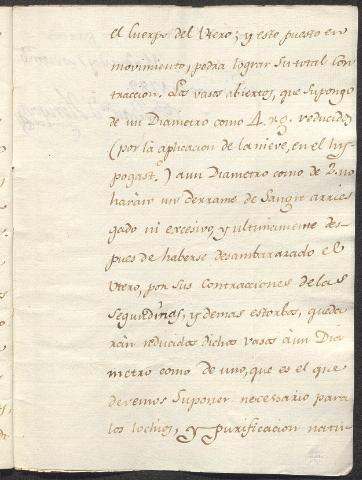 el Cuerpo del Utero; y esto puesto en
movimiento, podra lograr su total con
traccion. Los vasos abiertos, que supongo
de un Diametro como 4. reducidos
(por la aplicacion de la nieve, en el hy
pogast.) a un Diametro como de 2. no
haràn un derrame de Sangre arries
gado ni excesivo, y ultimamente des-
pues de haberse desambarazado el
Utero, por sus contracciones de las
Segundinas, y demas estorbos, queda
ràn reducidos dichos vasos à un Dia
metro como de uno, que es el que
devemos Suponer necesario para
los lochios, y purificacion natu-